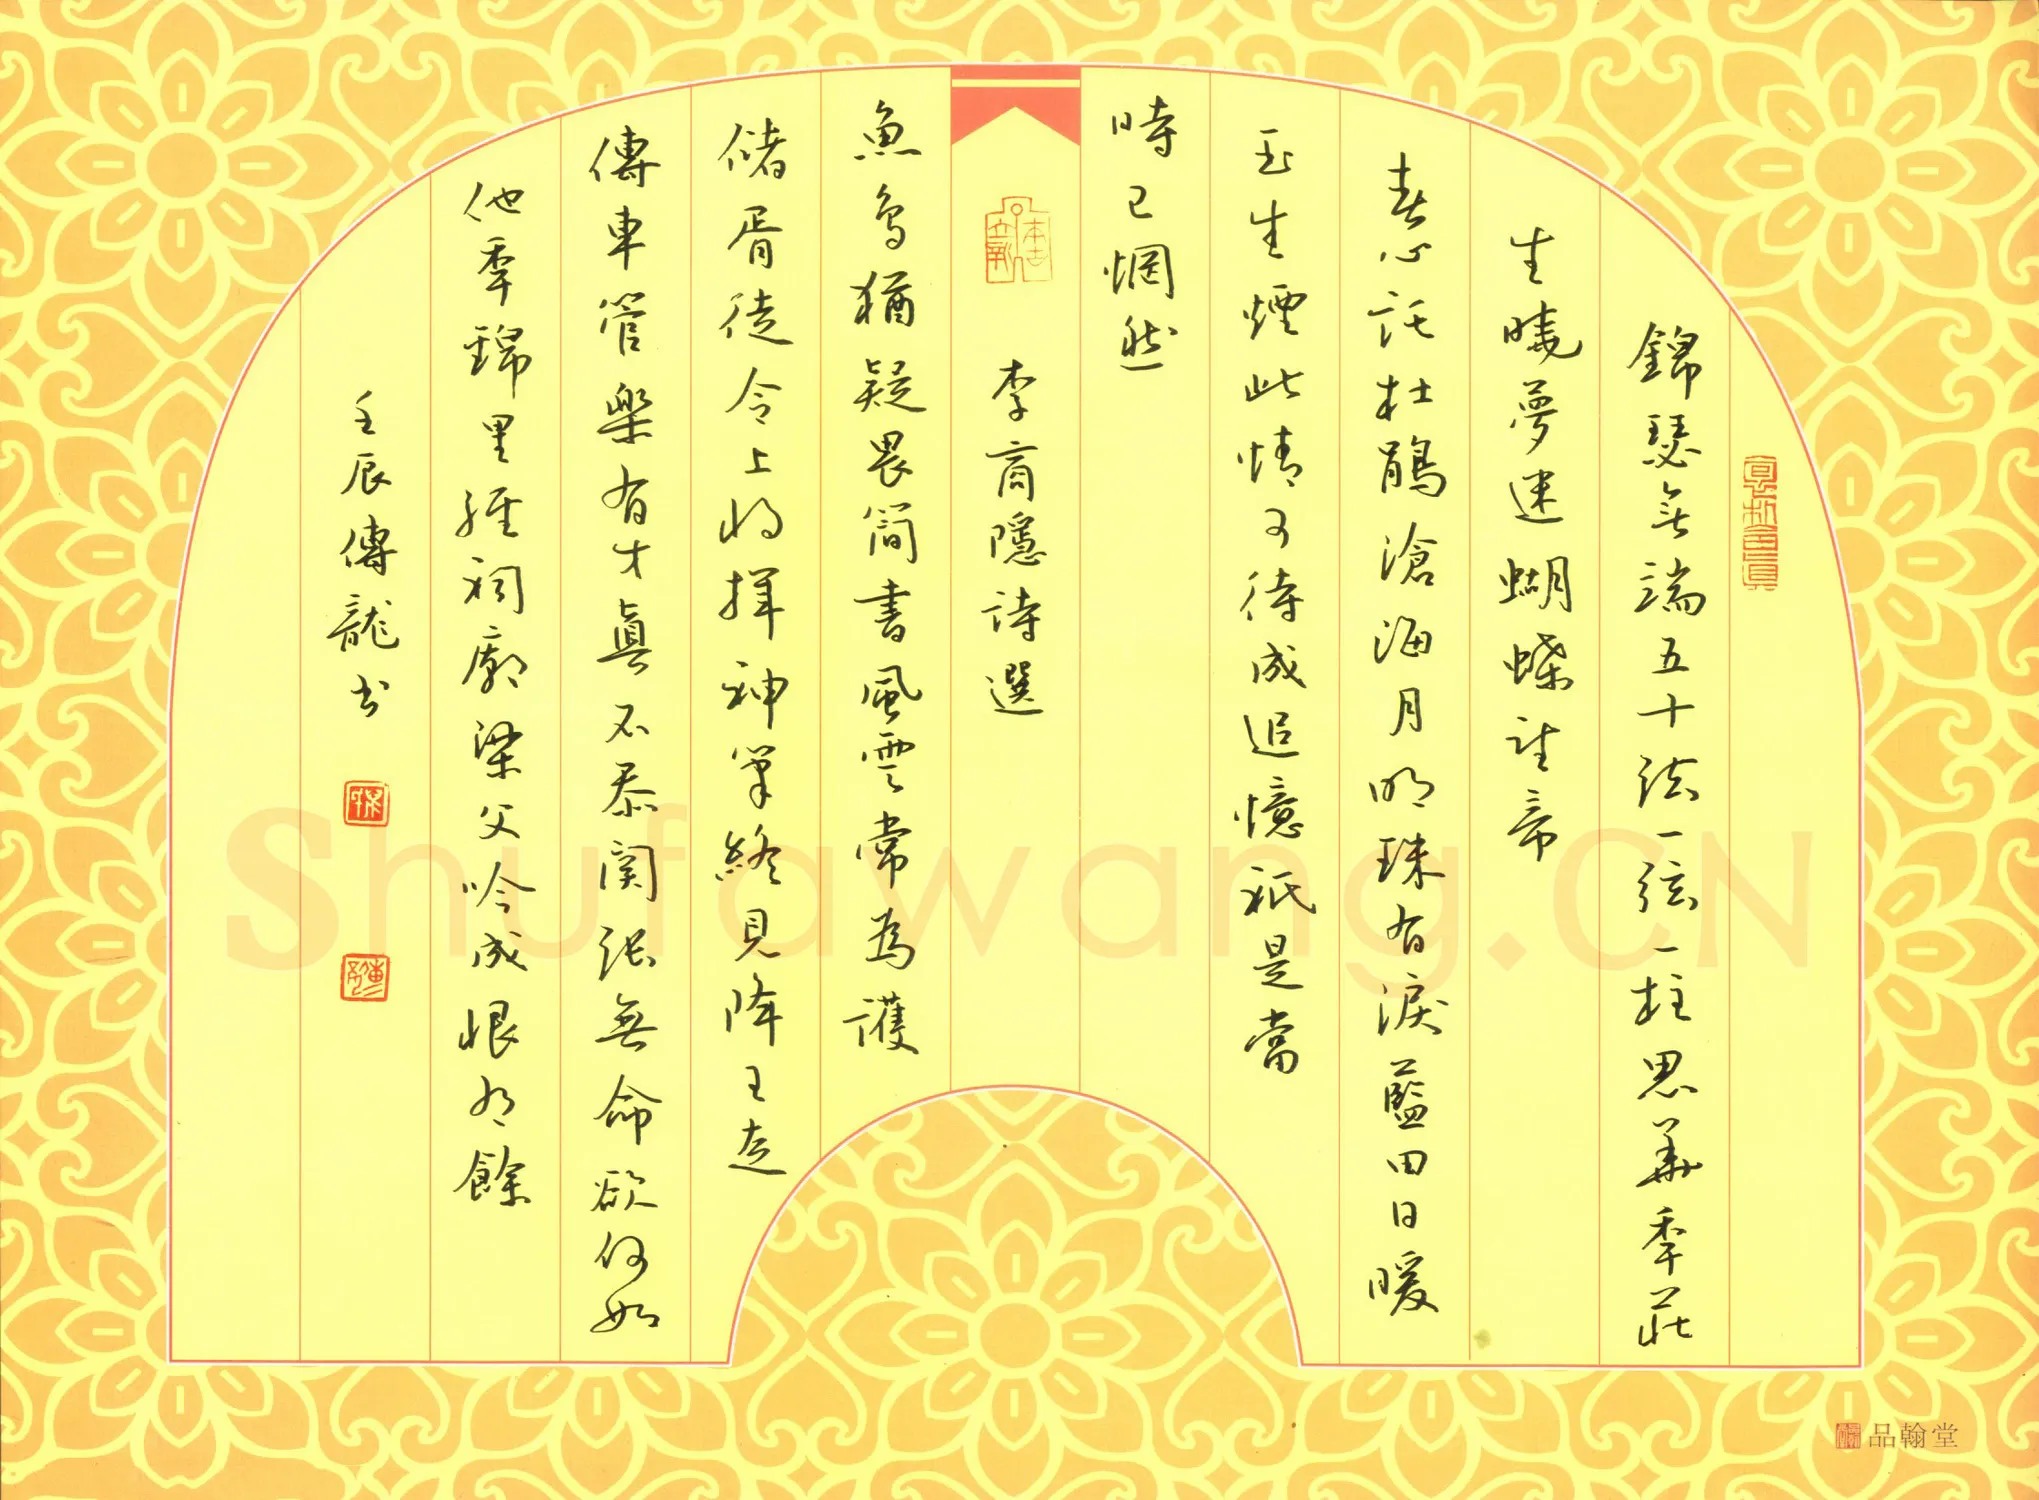 錦瑟無端五十弦一弦一柱思華秊莊
生曉夢迷蝴蝶望帝
春心託杜鵑滄海月明珠有淚藍田日暖
玉生煙此情可待成追憶祇是當
時已惘然
李商隱詩選
魚鳥猶疑畏簡書風雲常為護
儲胥徒令上將揮神筆終見降王走
傳車管樂有才真不忝関張無命欲何如
他秊錦里經祠廟梁父吟成恨有餘
壬辰傳龍書
品翰堂
Shufawang.CN